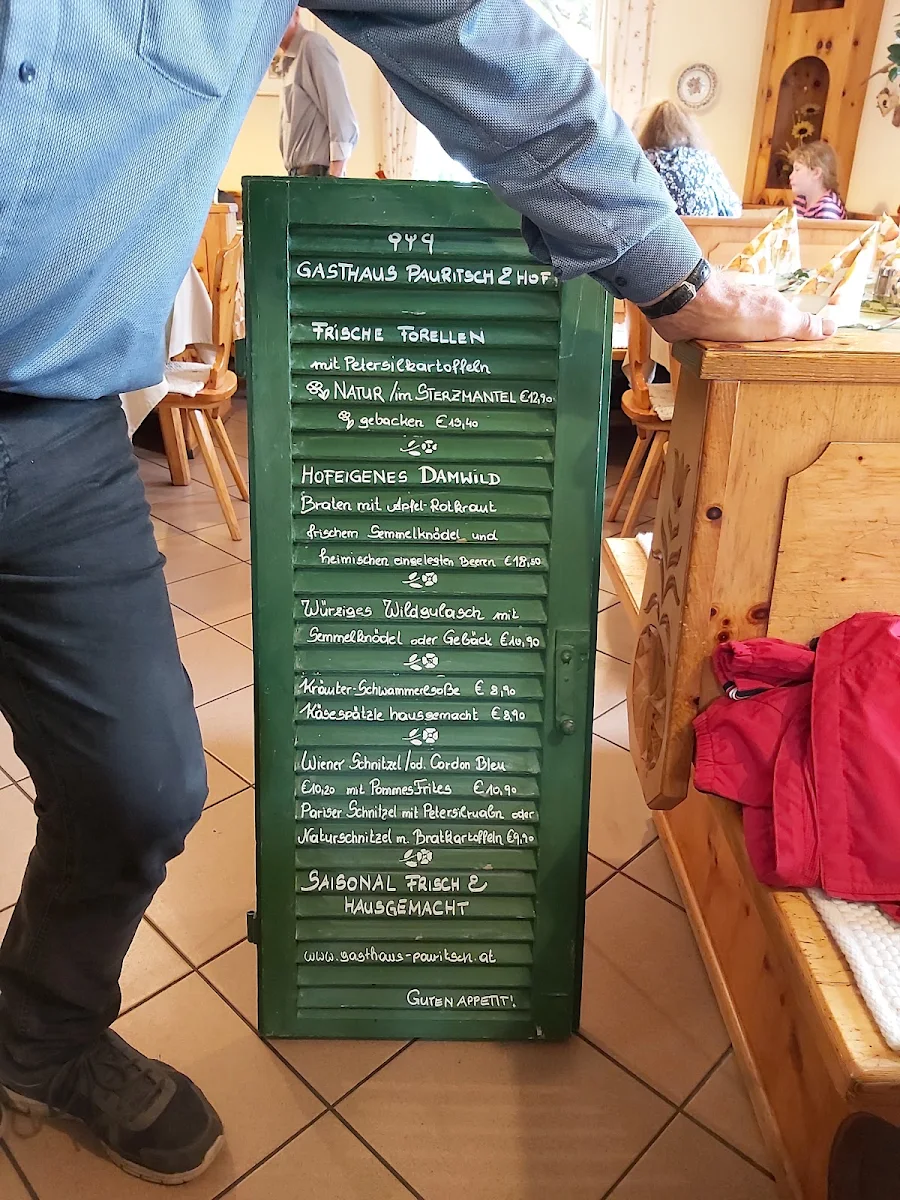 GASTHAUS PAURITSCH & HOF
FRISCHE FORELLEN
mit Petersilkartoffeln
NATUR / im STERZMANTEL €12,90
gebacken €13,40
HOFEIGENES DAMWILD
Braten mit Apfel-Rotkraut
frischem Semmelknödel und
heimischen eingelegten Beeren €18,50
Würziges Wildgulasch mit
Semmelknödel oder Gebäck €10,90
Kräuter-Schwammerlsoße € 8,90
Käsespätzle hausgemacht €8,90
Wiener Schnitzel /od. Cordon Bleu
€10,20 mit Pommes Frites €10,90
Pariser Schnitzel mit Petersil oder
Naturschnitzel m. Bratkartoffeln €9,90
SAISONAL FRISCH &
HAUSGEMACHT
www.gasthaus-pauritsch.at
GUTEN APPETIT!